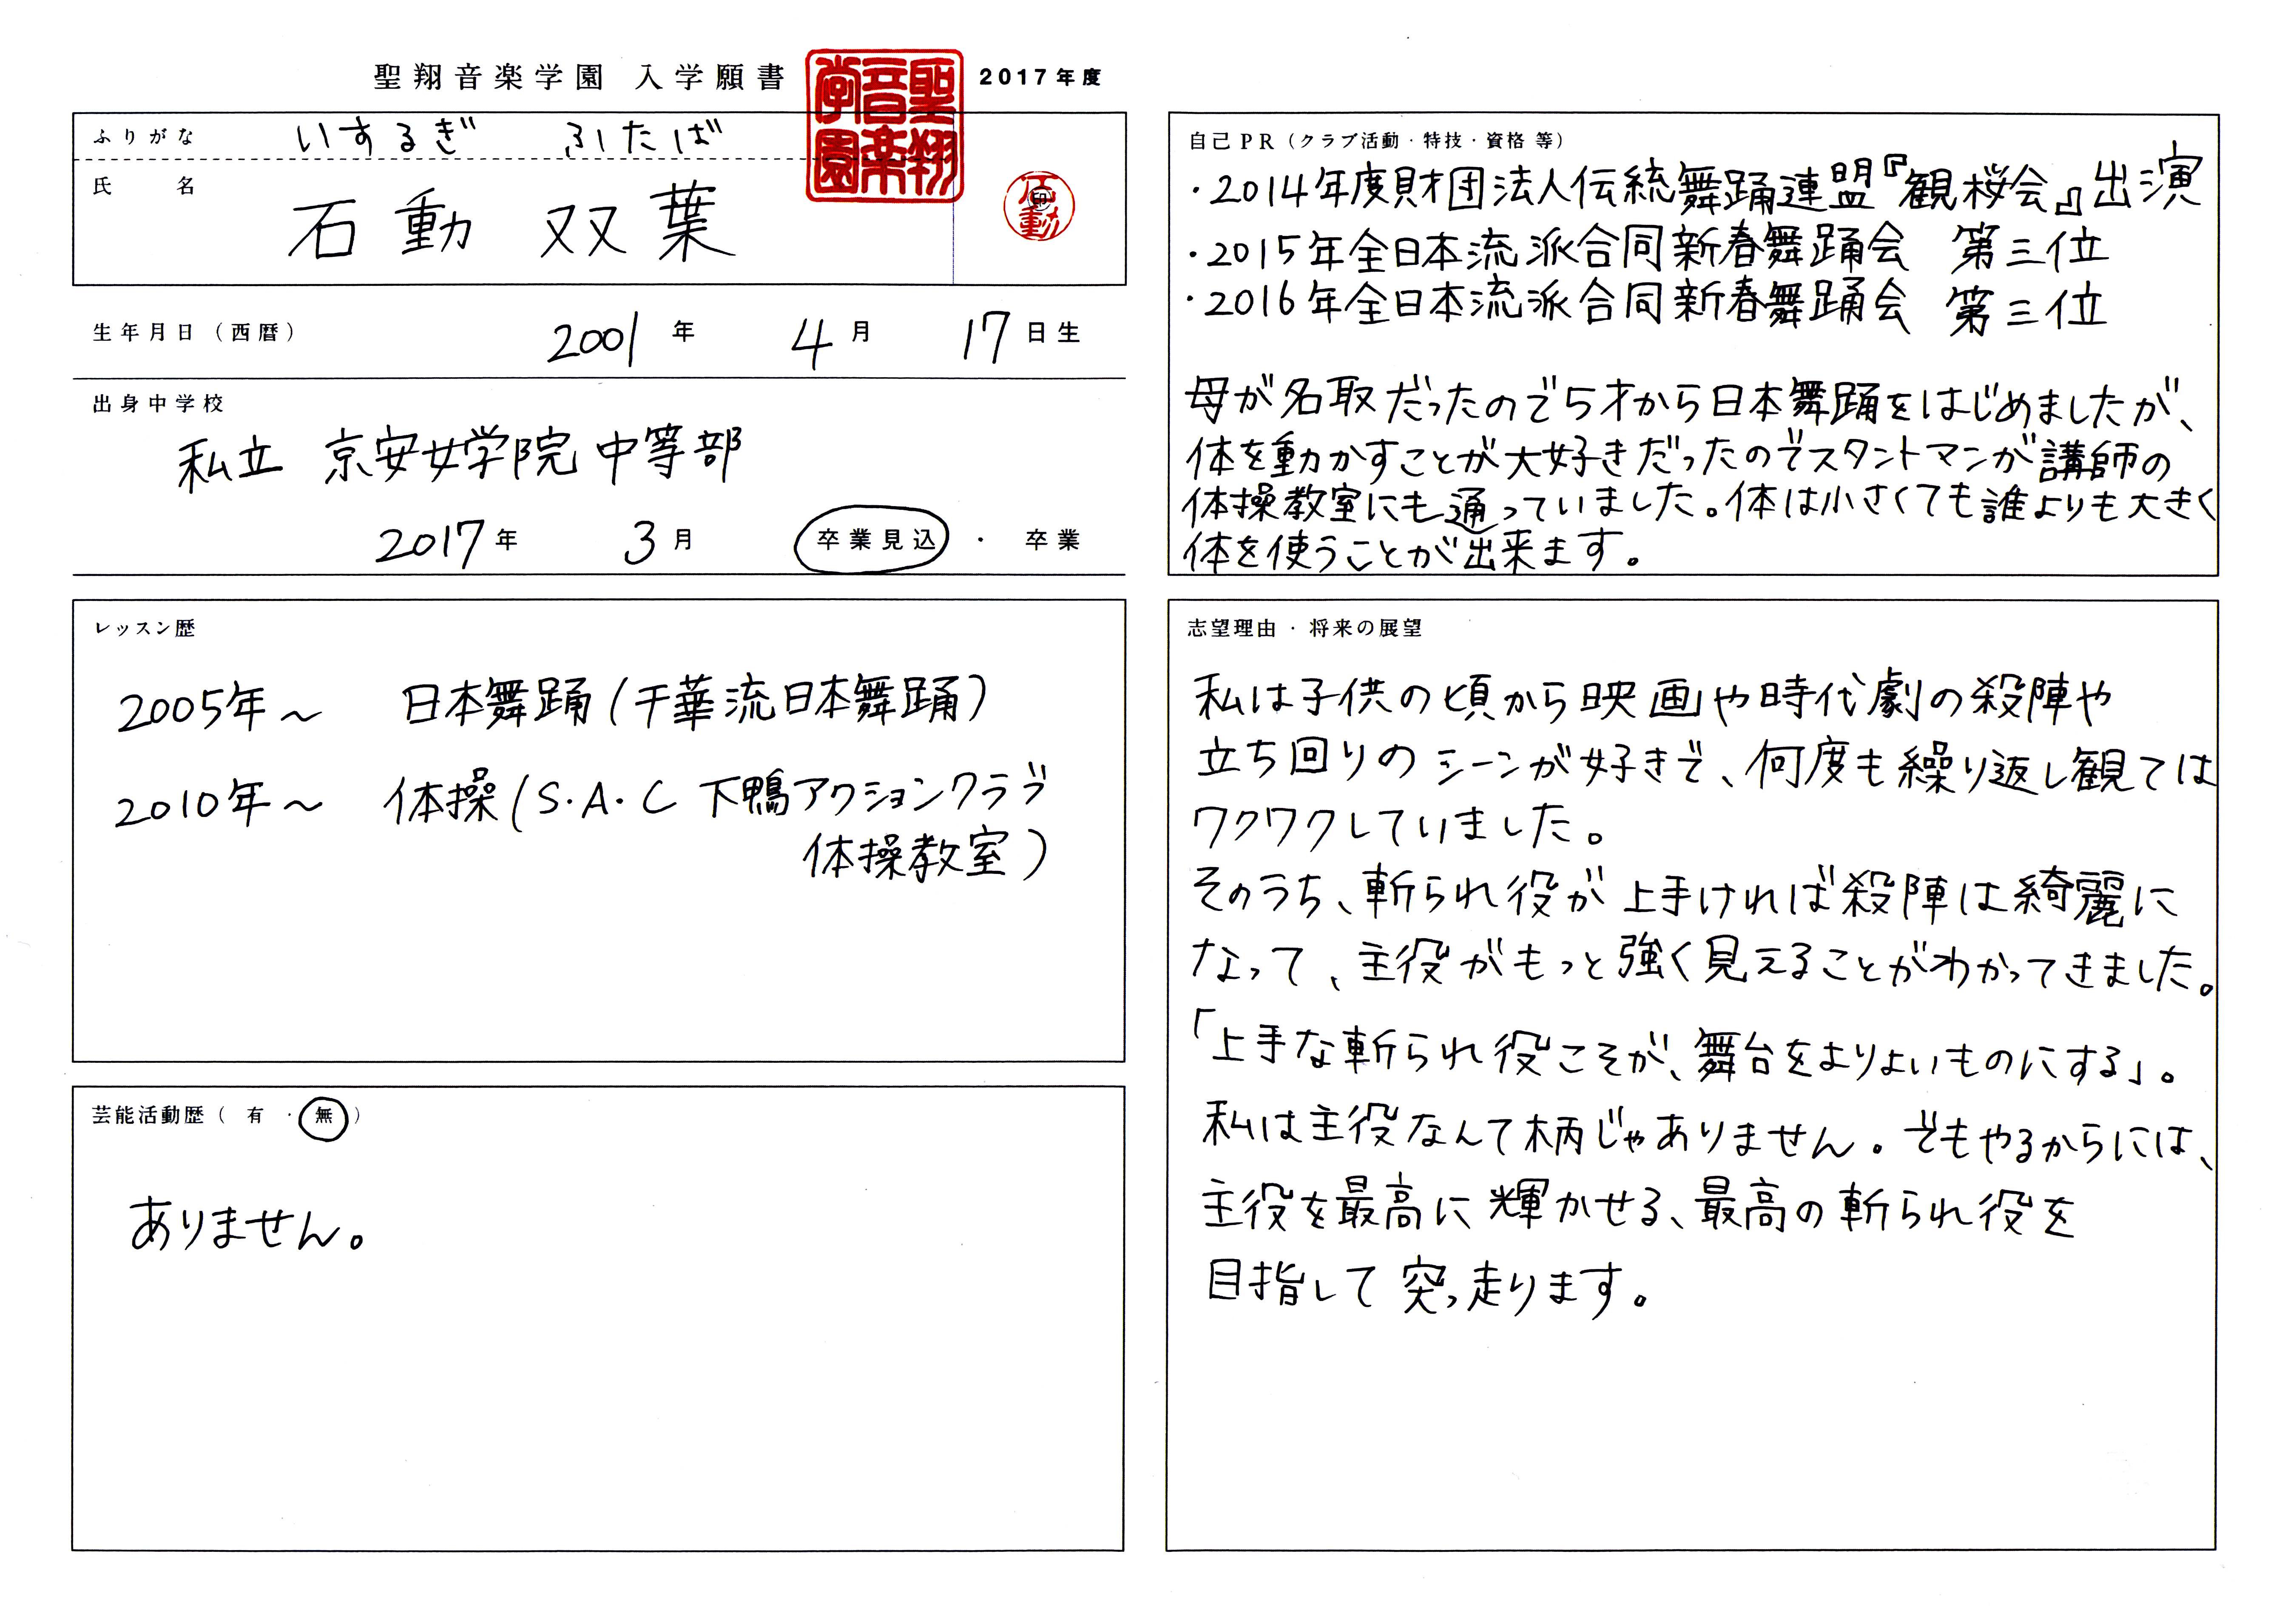 聖翔音楽学園 入学願書
聖翔音楽学園
2017年度
ふりがな いするぎ ふたば
氏名 石動 双葉
石動
印
生年月日(西暦) 2001年 4月 17日生
出身中学校
私立 京安女学院中等部
2017年 3月 卒業見込 ・ 卒業
レッスン歴
2005年~ 日本舞踊(千華流日本舞踊)
2010年~ 体操(S.A.C 下鴨アクションクラブ
体操教室)
芸能活動歴( 有 ・ 無 )
ありません。
自己PR(クラブ活動・特技・資格 等)
・2014年度財団法人伝統舞踊連盟『観桜会』出演
・2015年全日本流派合同新春舞踊会 第三位
・2016年全日本流派合同新春舞踊会 第三位
母が名取だったので5才から日本舞踊をはじめましたが、
体を動かすことが大好きだったのでスタントマンが講師の
体操教室にも通っていました。体は小さくても誰よりも大きく
体を使うことが出来ます。
志望理由・将来の展望
私は子供の頃から映画や時代劇の殺陣や
立ち回りのシーンが好きで、何度も繰り返し観ては
ワクワクしていました。
そのうち、斬られ役が上手ければ殺陣は綺麗に
なって、主役がもっと強く見えることがわかってきました。
「上手な斬られ役こそが、舞台をよりよいものにする」。
私は主役なんて柄じゃありません。でもやるからには、
主役を最高に輝かせる、最高の斬られ役を
目指して突っ走ります。